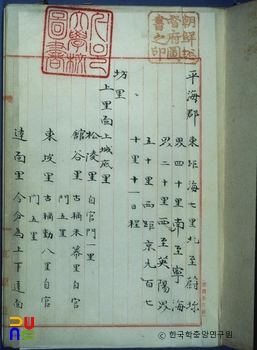 朝鮮總
督府圖
書之印
平海郡 東距海七里北至蔚珍
界四十里南至寧海
界二十里西至英陽界
五十里西距京九百七
十里十一日程
坊里
上里面上城底里
松陵里 自官門一里
館谷里 古稱未峯里自官
門五里
東坡里 古稱勤八里自官
門五里
遠面里 今分為上下遠面
© 한국학중앙연구원